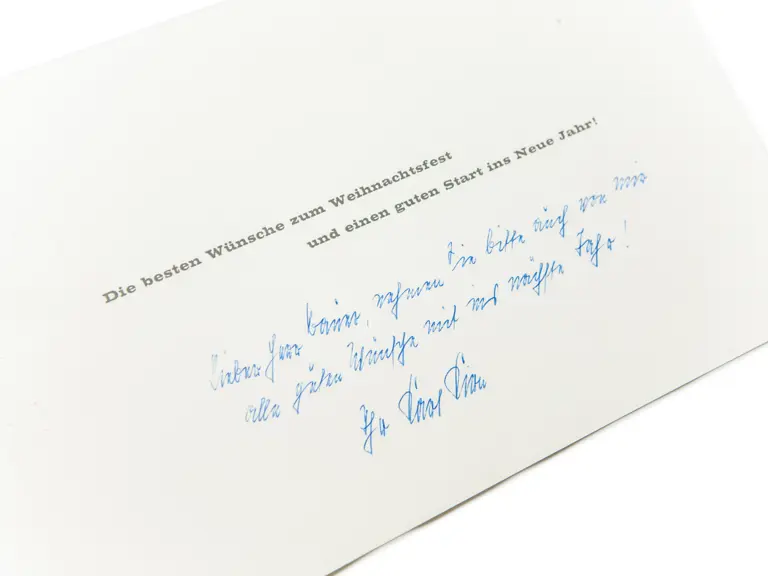 Die besten Wünsche zum Weihnachtsfest
und einen guten Start ins Neue Jahr!
Lieber Herr Bauer, nehmen Sie bitte auch von mir
alle guten Wünsche mit ins nächste Jahr!
Ihr